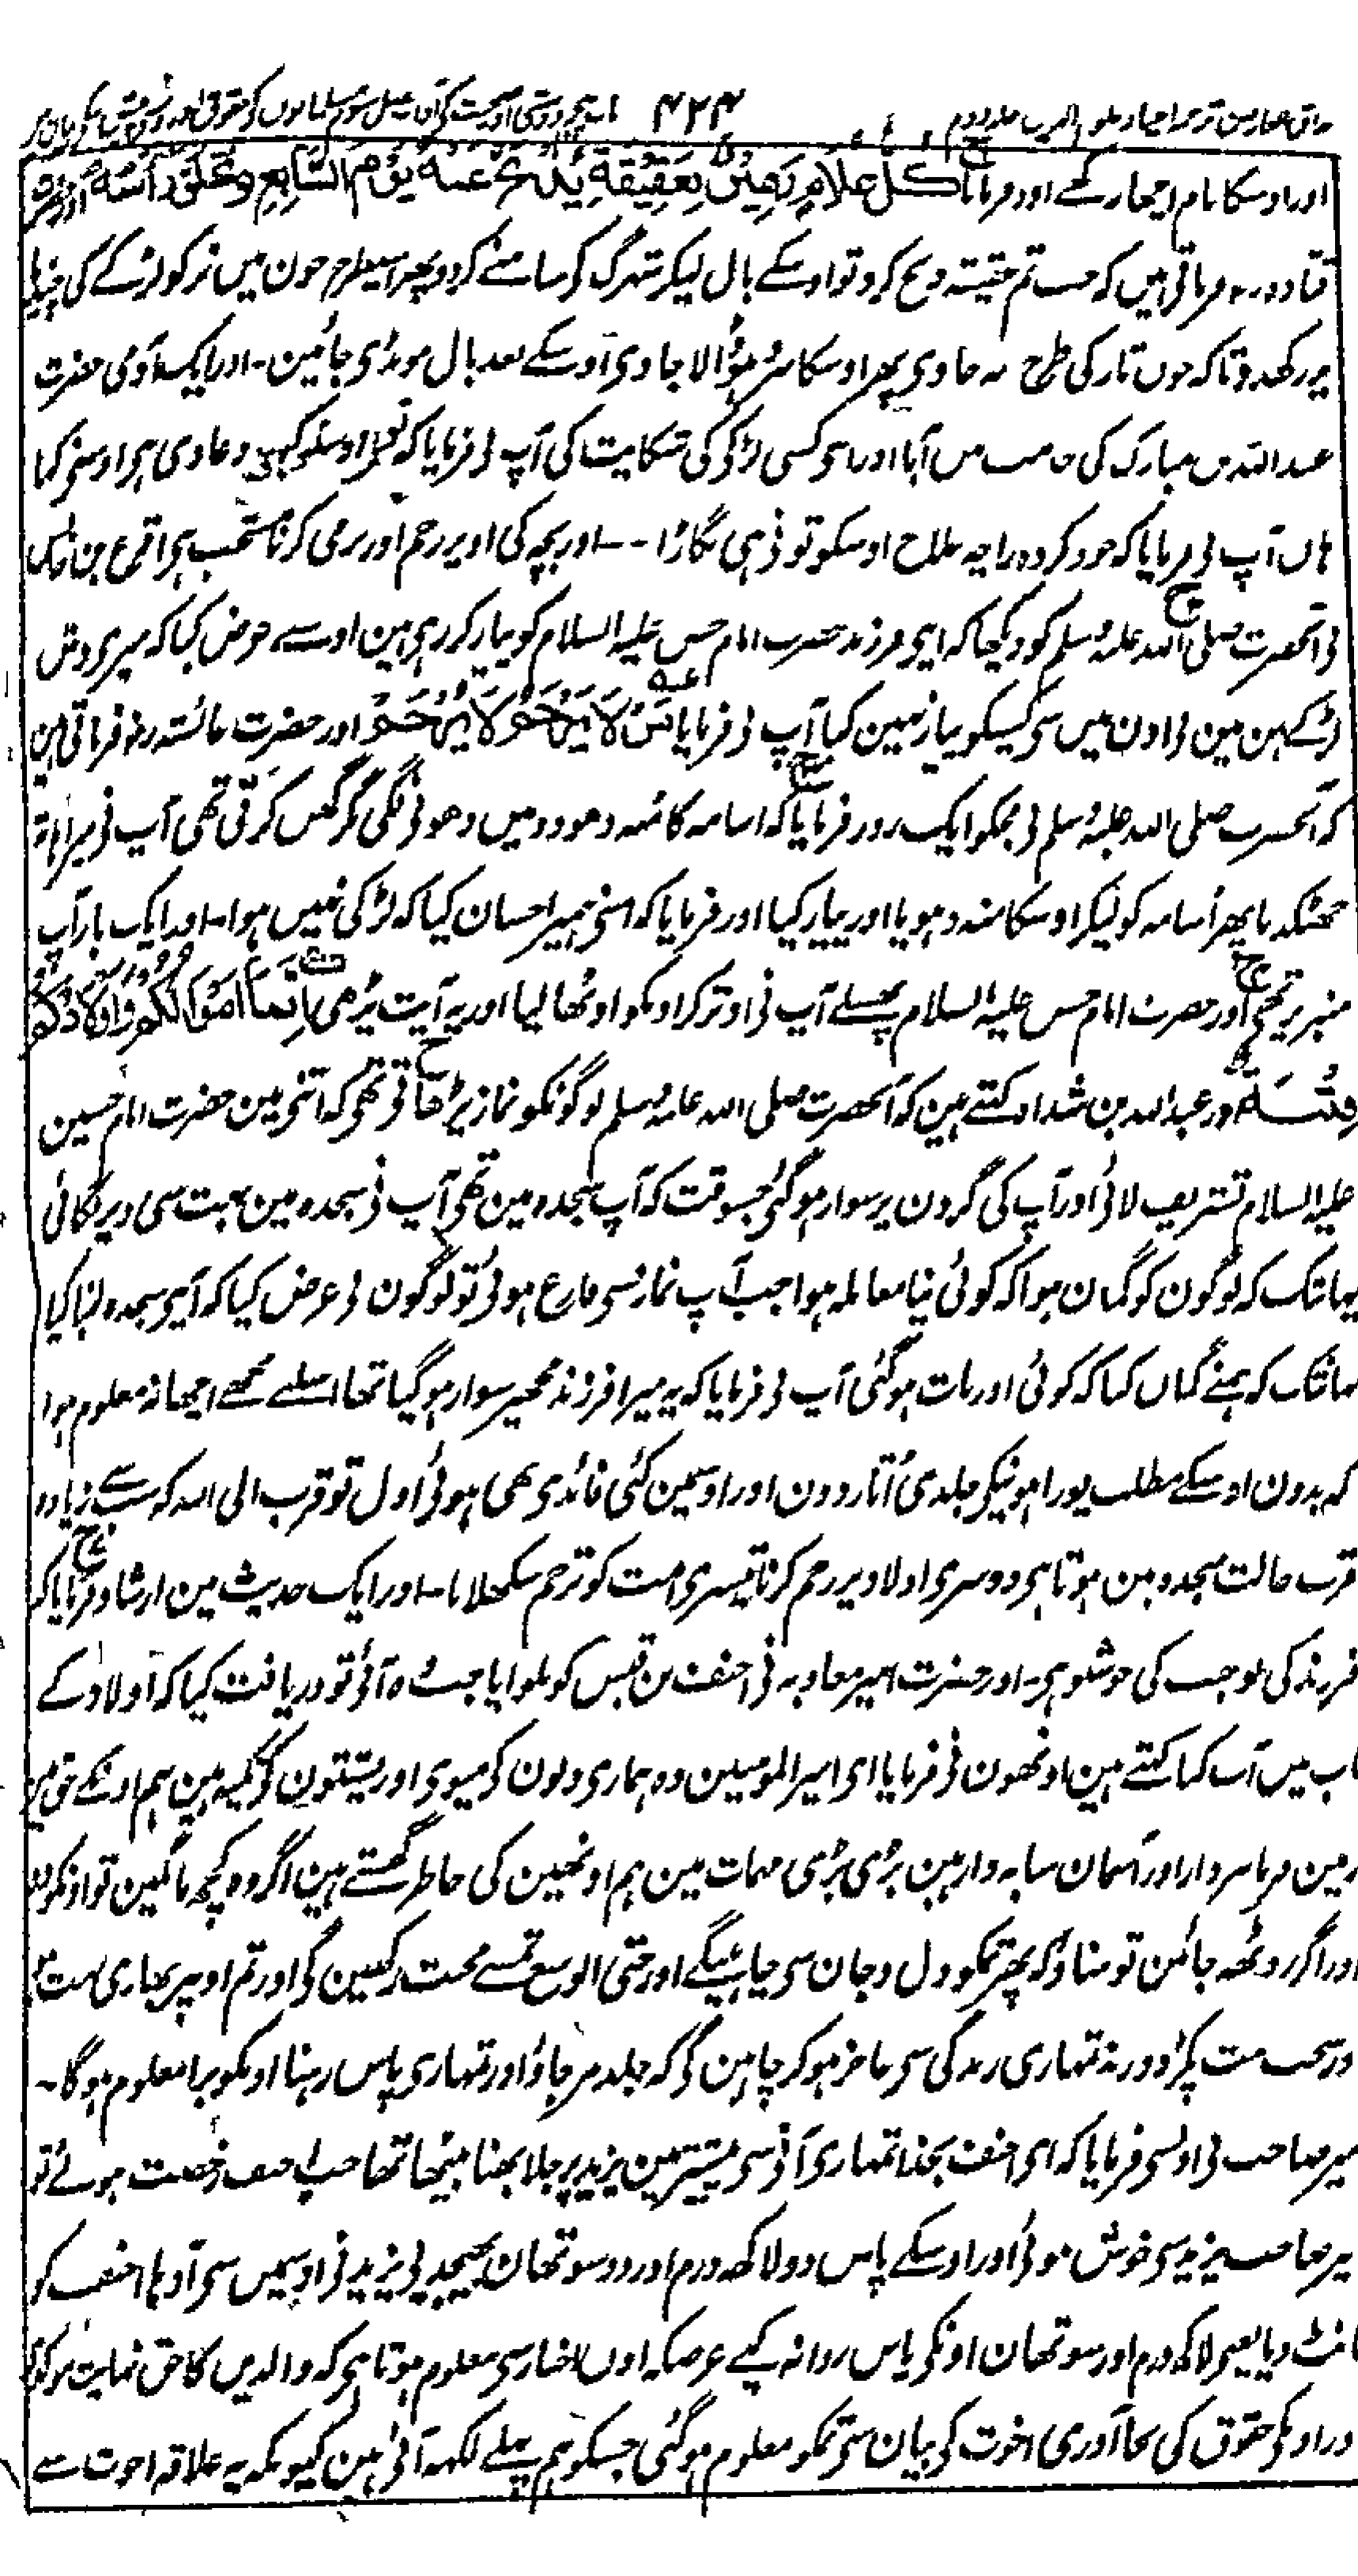 مذاق العارفین ترجمہ احیاء علوم الدین جلد دوم ۴۲۴ باب پنجم دوستی اور صحبت کے آداب فصل سوم مسلمانوں کے حقوق
اور اوسکا نام اچھا رکھے اور فرمایا کُلُّ غُلَامٍ رَهِيْنٌ بِعَقِيْقَةٍ يُذْبَحُ عَنْهُ يَوْمَ السَّابِعِ وَيُحْلَقُ رَأْسُهُ اور حضرت
قتادہ رضہ فرماتے ہیں کہ جب تم عقیقہ ذبح کرو تو اوسکے بال لیکر شہرگ کے سامنے کردو پھر اسیطرح خون میں تر کو لڑکے کی چندیا
پر رکھدو تاکہ خون تار کی طرح بہ جاوے پھر اوسکا سر دھوڈالا جاوے اوسکے بعد بال مونڈی جائین۔ اور ایک آدمی حضرت
عبد اللہ بن مبارک کی خدمت میں آیا اور اپنے کسی لڑکے کی شکایت کی آپ نے فرمایا کہ تونے اوسکو کبھی بد دعا دی ہے اوسنے کہا
ہاں آپ نے فرمایا کہ خود کردہ را چہ علاج اوسکو تونے ہی بگاڑا ۔۔ اور بچہ کے اوپر رحم اور نرمی کرنا مستحب ہے اقرع بن حابس
نے آنحضرت صلی اللہ علیہ وسلم کو دیکھا کہ اپنے فرزند حضرت امام حسن علیہ السلام کو پیار کر رہے ہین اونسے عرض کیا کہ میرے دس
لڑکے ہین مین نے اون میں سے کیسکو پیار نہین کیا آپ نے فرمایا مَنْ لَا يَرْحَمُ لَا يُرْحَمُ اور حضرت عائشہ رضہ فرماتی ہین
کہ آنحضرت صلی اللہ علیہ وسلم نے مجکو ایک روز فرمایا کہ اسامہ کا منہ دھودو میں دھونے لگی مگر گھن کرتی تھی آپ نے میرا ہاتھ
جھٹکدیا پھر اُسامہ کو لیکر اوسکا منہ دہویا اور پیار کیا اور فرمایا کہ اسنے ہمپر احسان کیا کہ لڑکی نہیں ہوا۔ اور ایک بار آپ
منبر پر تھے اور حضرت امام حسن علیہ السلام پھسلے آپ نے اوترکر اونکو اوٹھا لیا اور یہ آیت پڑھی إِنَّمَا أَمْوَالُكُمْ وَأَوْلَادُكُمْ
فِتْنَةٌ اور عبد اللہ بن شداد کہتے ہین کہ آنحضرت صلی اللہ علیہ وسلم لوگونکو نماز پڑھاتے تھے کہ اتنے مین حضرت امام حسین
علیہ السلام تشریف لائے اور آپ کی گردن پر سوار ہوگئے جسوقت کہ آپ سجدہ مین تھے آپ نے سجدہ مین بہت سی دیر لگائی
یہانتک کہ لوگون کو گمان ہوا کہ کوئی نیا معاملہ ہوا جب آپ نماز سے فارغ ہوئے تو لوگون نے عرض کیا کہ آپنے سجدہ لنبا کیا
یہانتک کہ ہمنے گمان کیا کہ کوئی اور بات ہوگئی آپ نے فرمایا کہ یہ میرا فرزند مجھپر سوار ہوگیا تھا اسلیے مجھے اچھا نہ معلوم ہوا
کہ بدون اوسکے مطلب پورا ہونیکے جلدی اُتاردون اور اوسمین کئی فائدے بھی ہوئے اول تو قرب الی اللہ کہ سب سے زیادہ
قرب حالت سجدہ مین ہوتا ہے دوسرے اولاد پر رحم کرنا تیسرے امت کو ترحم سکھلانا۔ اور ایک حدیث مین ارشاد فرمایا کہ
فرزند کی بو جنت کی خوشبو ہے۔ اور حضرت امیر معاویہ نے احنف بن قیس کو بلوایا جب وہ آئے تو دریافت کیا کہ اولاد کے
باب میں آپ کیا کہتے ہین اونھون نے فرمایا اے امیر المومنین وہ ہمارے دلون کے میوے اور پشتون کے تکیہ ہین ہم اونکے حق مین
زمین فرمانبردار اور آسمان سایہ دار ہین بڑے بڑے مہمات مین ہم اونھین کی خاطر گھستے ہین اگر وہ کچھ مانگین تو اونکو دو
اور اگر روٹھہ جائین تو مناؤ کہ پھر تمکو دل و جان سے چاہینگے اور حتی الوسع تمسے محبت رکھین گے اور تم اونپر بھاری مت ہو
اور سخت مت پکڑو ورنہ تمہاری زندگی سے عاجز ہوکر چاہین گے کہ جلد مرجاؤ اور تمہارے پاس رہنا اونکو برا معلوم ہوگا۔
امیر صاحب نے اونسے فرمایا کہ اے احنف بخدا تمہارے آنے سے پیشتر مین یزید پر جلا بھنا بیٹھا تھا جب احنف رخصت ہوئے تو
امیر صاحب یزید سے خوش ہوئے اور اوسکے پاس دو لاکھہ درم اور دو سو تھان بھیجدیے یزید نے اوسمیں سے آدھا احنف کو
بانٹ دیا یعنے لاکھہ درم اور سو تھان اونکے پاس روانہ کیے غرضکہ اون اخبار سے معلوم ہوتا ہے کہ والدین کا حق نہایت موکد ہے
اور اونکے حقوق کی بجا آوری اخوت کے بیان سے تمکو معلوم ہوگئی جسکو ہم پہلے لکہہ آئے ہین کیونکہ یہ علاقہ اخوت سے